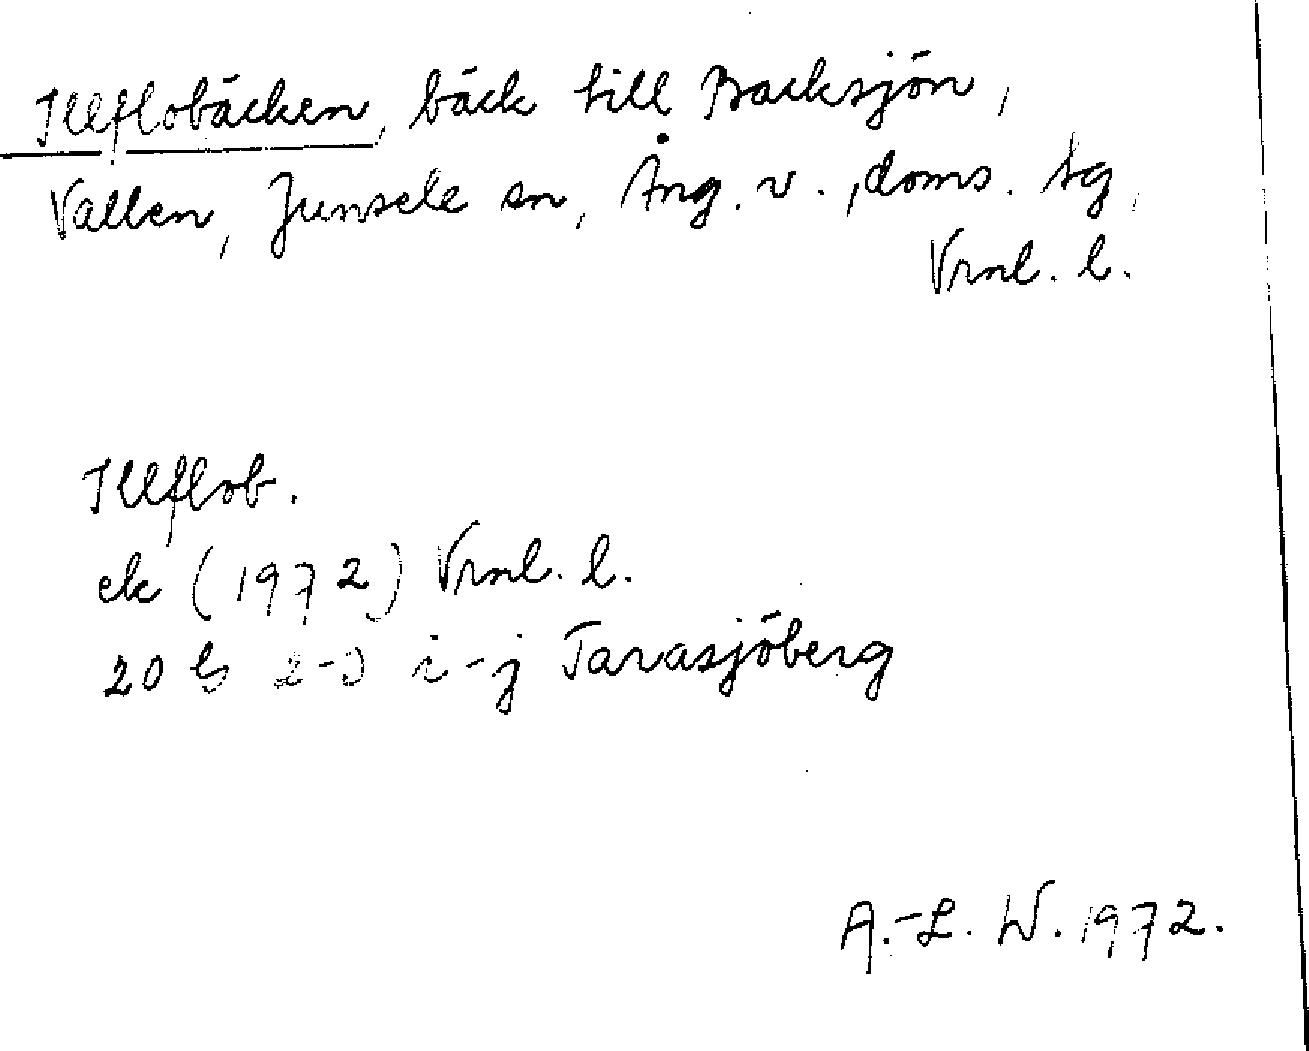 Illflobäcken, bäck till Backsjön,
Vallen, Junsele sn, Ång. v., doms. tg,
Vrnl. l.
Illflob.
ek (1972) Vrnl. l.
20 G 2-3 i-j Tarasjöberg
A.-L. W. 1972.